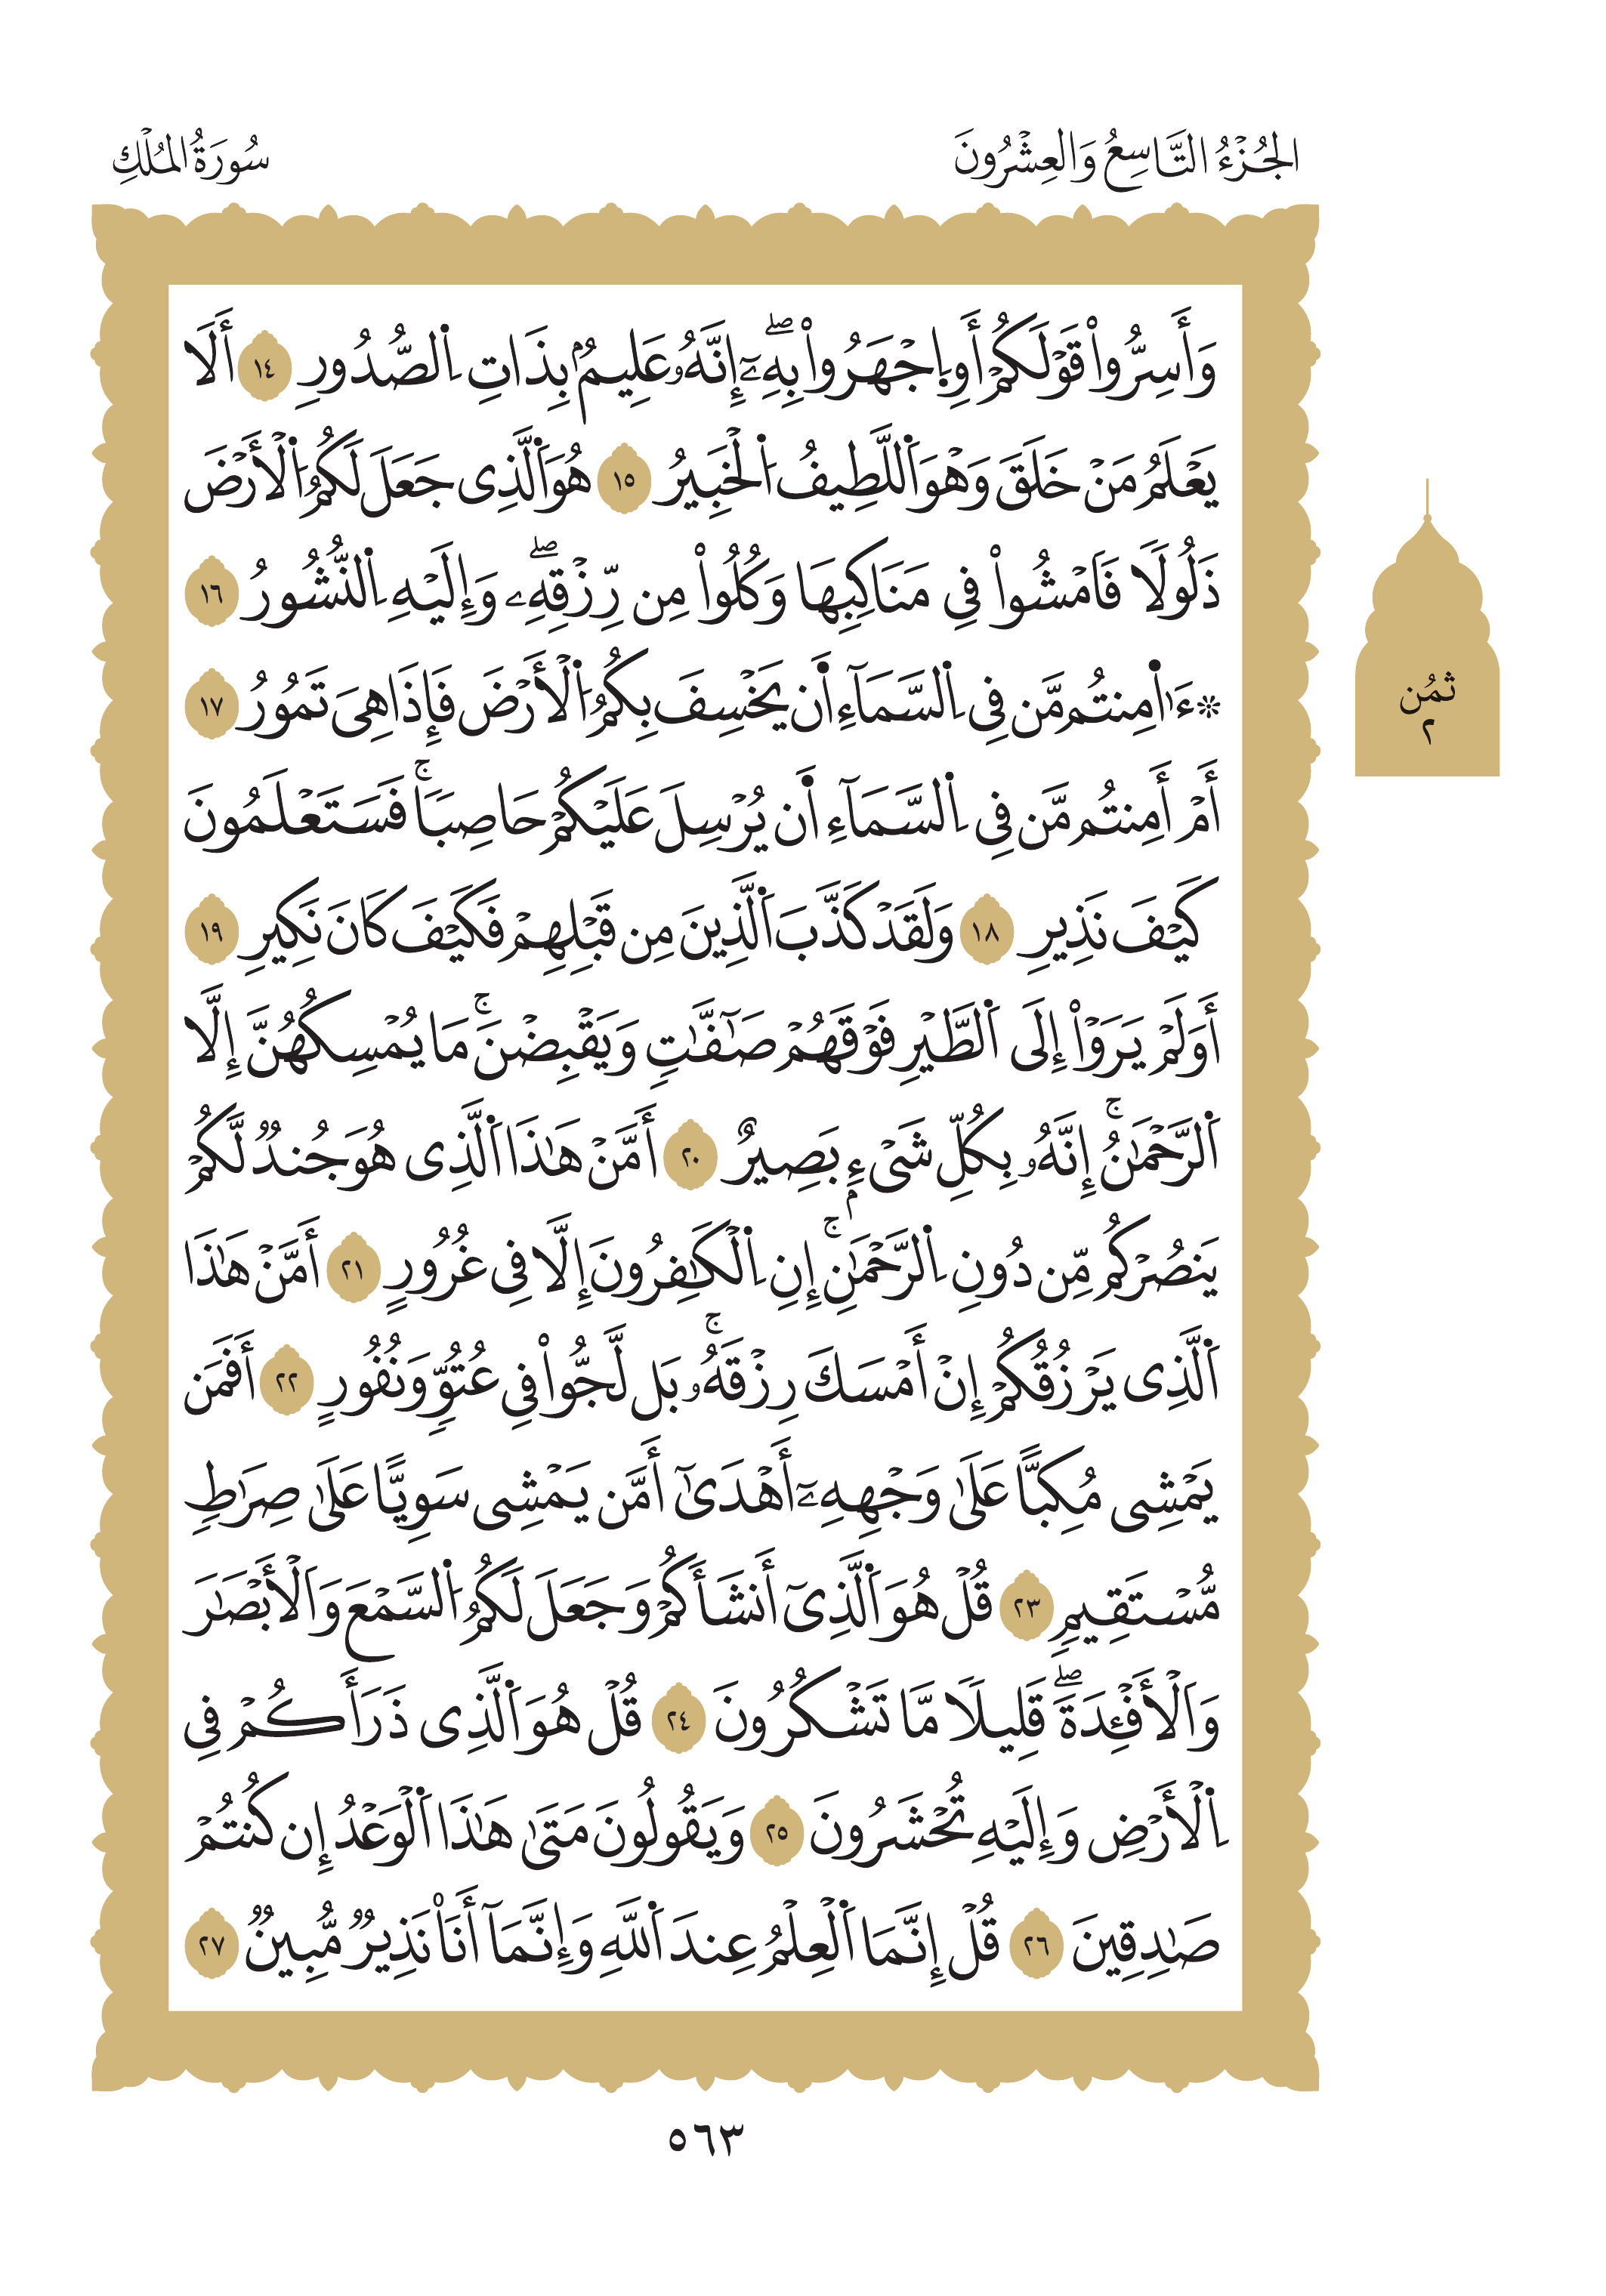 الجُزْءُ التَّاسِعُ وَالعِشْرُونَ
سُورَةُ المُلْكِ
وَأَسِرُّواْ قَوْلَكُمْ أَوِ اِ۪جْهَرُواْ بِهِۦٓۖ إِنَّهُۥ عَلِيمُۢ بِذَاتِ اِ۬لصُّدُورِ ١٤ أَلَا
يَعْلَمُ مَنْ خَلَقَ وَهْوَ اَ۬للَّطِيفُ اُ۬لْخَبِيرُ ١٥ هُوَ اَ۬لَّذِى جَعَلَ لَكُمُ اُ۬لْأَرْضَ
ذَلُولٗا فَامْشُواْ فِى مَنَاكِبِهَا وَكُلُواْ مِن رِّزْقِهِۦۖ وَإِلَيْهِ اِ۬لنُّشُورُ ١٦
۞ءَا۬مِنتُم مَّن فِى اِ۬لسَّمَآءِ اَ۬ن يَخْسِفَ بِكُمُ اُ۬لْأَرْضَ فَإِذَا هِىَ تَمُورُ ١٧
أَمْ أَمِنتُم مَّن فِى اِ۬لسَّمَآءِ اَ۬ن يُرْسِلَ عَلَيْكُمْ حَاصِبٗاۚ فَسَتَعْلَمُونَ
كَيْفَ نَذِيرِ ١٨ وَلَقَدْ كَذَّبَ اَ۬لَّذِينَ مِن قَبْلِهِمْ فَكَيْفَ كَانَ نَكِيرِ ١٩
أَوَلَمْ يَرَوْاْ إِلَى اَ۬لطَّيْرِ فَوْقَهُمْ صَٰٓفَّٰتٖ وَيَقْبِضْنَۚ مَا يُمْسِكُهُنَّ إِلَّا
اَ۬لرَّحْمَٰنُۚ إِنَّهُۥ بِكُلِّ شَىْءِۢ بَصِيرٌ ٢٠ أَمَّنْ هَٰذَا اَ۬لَّذِى هُوَ جُندٞ لَّكُمْ
يَنصُرْكُم مِّن دُونِ اِ۬لرَّحْمَٰنِۚ إِنِ اِ۬لْكَٰفِرُونَ إِلَّا فِى غُرُورٍ ٢١ أَمَّنْ هَٰذَا
اَ۬لَّذِى يَرْزُقُكُمْ إِنْ أَمْسَكَ رِزْقَهُۥۚ بَل لَّجُّواْ فِى عُتُوّٖ وَنُفُورٍ ٢٢ أَفَمَن
يَمْشِى مُكِبًّا عَلَىٰ وَجْهِهِۦٓ أَهْدَىٰٓ أَمَّن يَمْشِى سَوِيًّا عَلَىٰ صِرَٰطٖ
مُّسْتَقِيمٖ ٢٣ قُلْ هُوَ اَ۬لَّذِىٓ أَنشَأَكُمْ وَجَعَلَ لَكُمُ اُ۬لسَّمْعَ وَالْأَبْصَٰرَ
وَالْأَفْـِٔدَةَۖ قَلِيلٗا مَّا تَشْكُرُونَ ٢٤ قُلْ هُوَ اَ۬لَّذِى ذَرَأَكُمْ فِى
اِ۬لْأَرْضِ وَإِلَيْهِ تُحْشَرُونَ ٢٥ وَيَقُولُونَ مَتَىٰ هَٰذَا اَ۬لْوَعْدُ إِن كُنتُمْ
صَٰدِقِينَ ٢٦ قُلْ إِنَّمَا اَ۬لْعِلْمُ عِندَ اَ۬للَّهِ وَإِنَّمَآ أَنَا۠ نَذِيرٞ مُّبِينٞ ٢٧
ثمُن
٢
٥٦٣